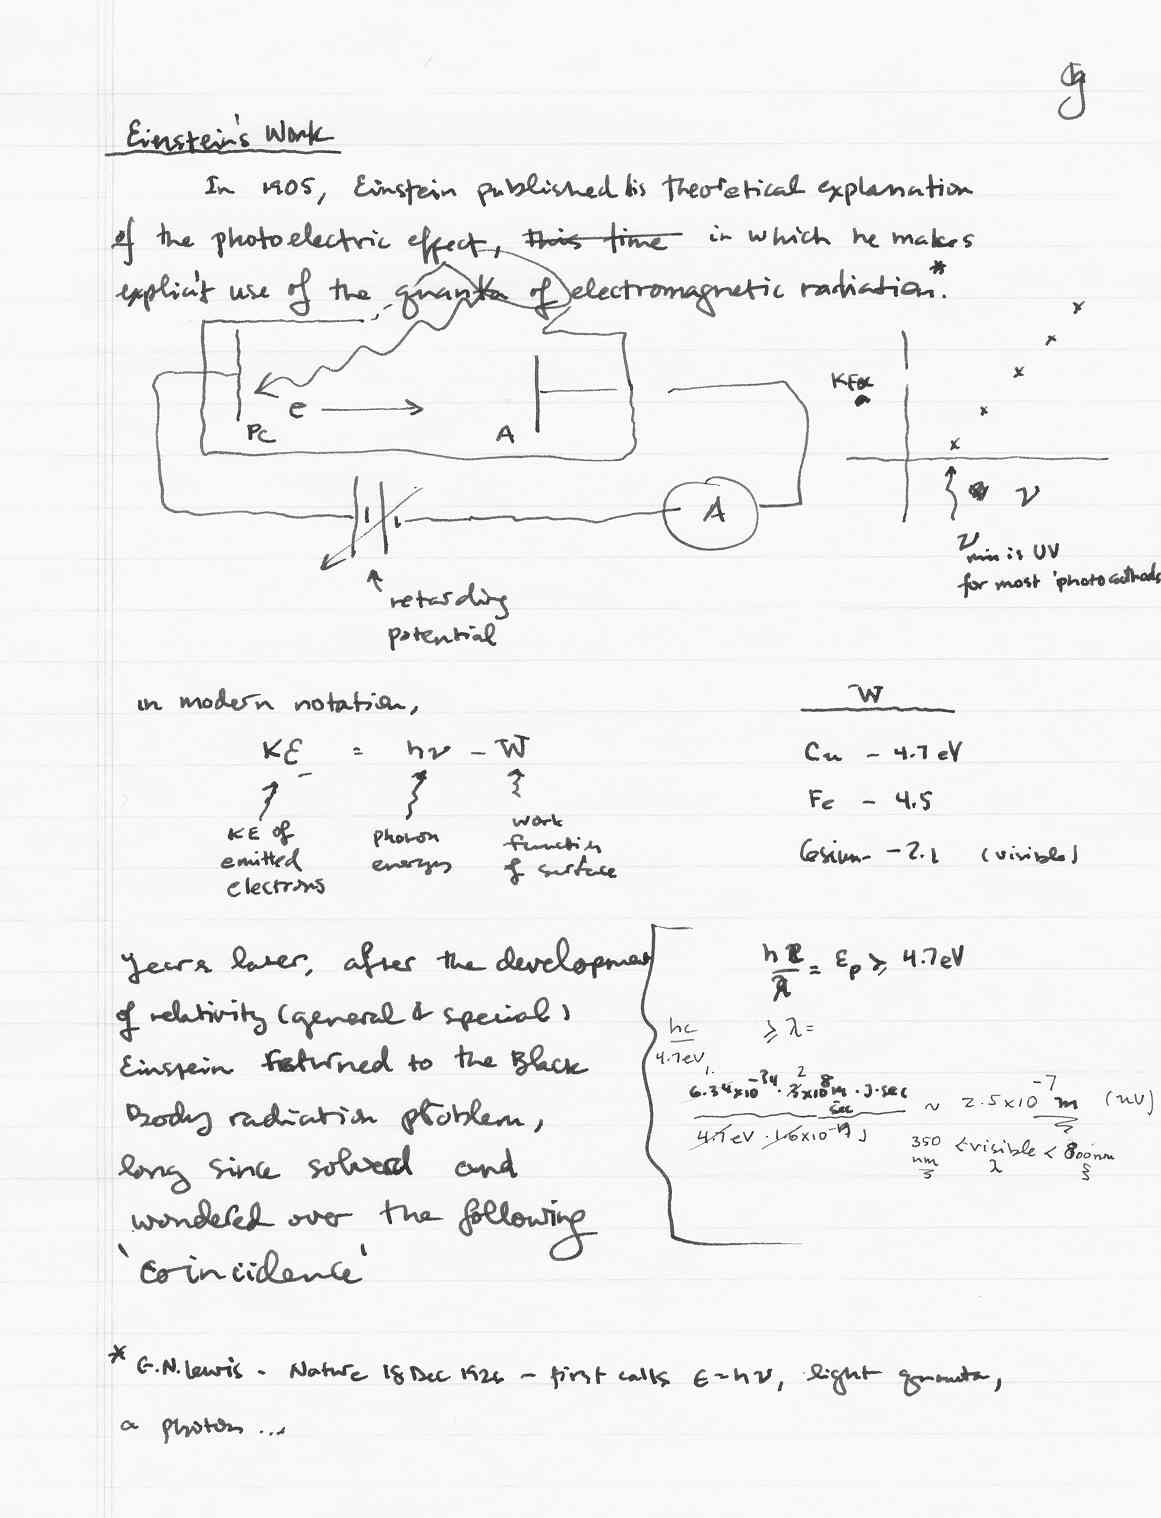 g
Einstein's Work
In 1905, Einstein published his theoretical explanation
of the photoelectric effect, this time in which he makes
explicit use of the quanta of electromagnetic radiation.*
e
PC
A
A
retarding
potential
KE
ν
ν min is UV
for most 'photocathods
in modern notation,
KE = hν - W
KE of
emitted
electrons
photon
energy
work
function
of surface
W
Cu - 4.7 eV
Fe - 4.5
Cesium - 2.1 (visible)
Years later, after the development
of relativity (general & special)
Einstein returned to the Black
Body radiation problem,
long since solved and
wondered over the following
'coincidence'
hc/λ = Ep ≥ 4.7eV
hc/4.7eV ≥ λ =
6.34x10^-34 · 3x10^8 m/sec · J·sec / 4.7eV · 1.6x10^-19 J ~ 2.5x10^-7 m (uv)
350 nm < visible λ < 800nm
* G.N. Lewis - Nature 18 Dec 1926 - first calls E=hν, light quanta,
a photon ...